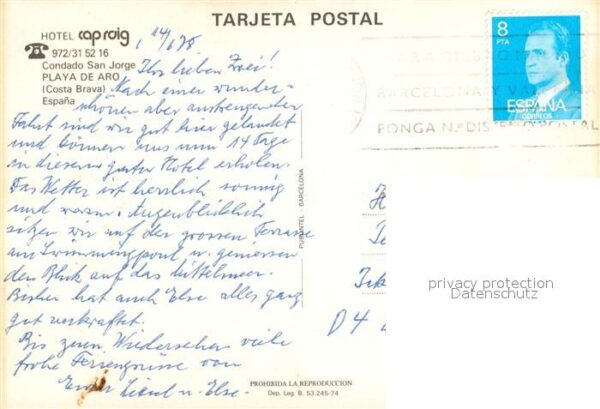 TARJETA POSTAL
HOTEL cap roig
972/31 52 16
Condado San Jorge
PLAYA DE ARO
(Costa Brava)
España
14/6 78
Ihr lieben Zwei!
Nach einer wunder-
schönen aber anstrengenden
Fahrt sind wir gut hier gelandet
und können uns nun 14 Tage
in diesem guten Hotel erholen.
Das Wetter ist herrlich sonnig
und warm. Augenblicklich
sitzen wir auf der grossen Terrasse
am Swimmingpool u. geniessen
den Blick auf das Mittelmeer.
Bisher hat auch Else alles ganz
gut verkraftet.
Bis zum Wiedersehen viele
frohe Feriengrüsse von
Liesel u. Else.
PURANTEL - BARCELONA
PROHIBIDA LA REPRODUCCION
Dep. Leg. B. 53.245-74
8
PTA
ESPAÑA
CORREOS
BARCELONA Y
PONGA N.º DIS POSTAL
D 4
privacy protection
Datenschutz